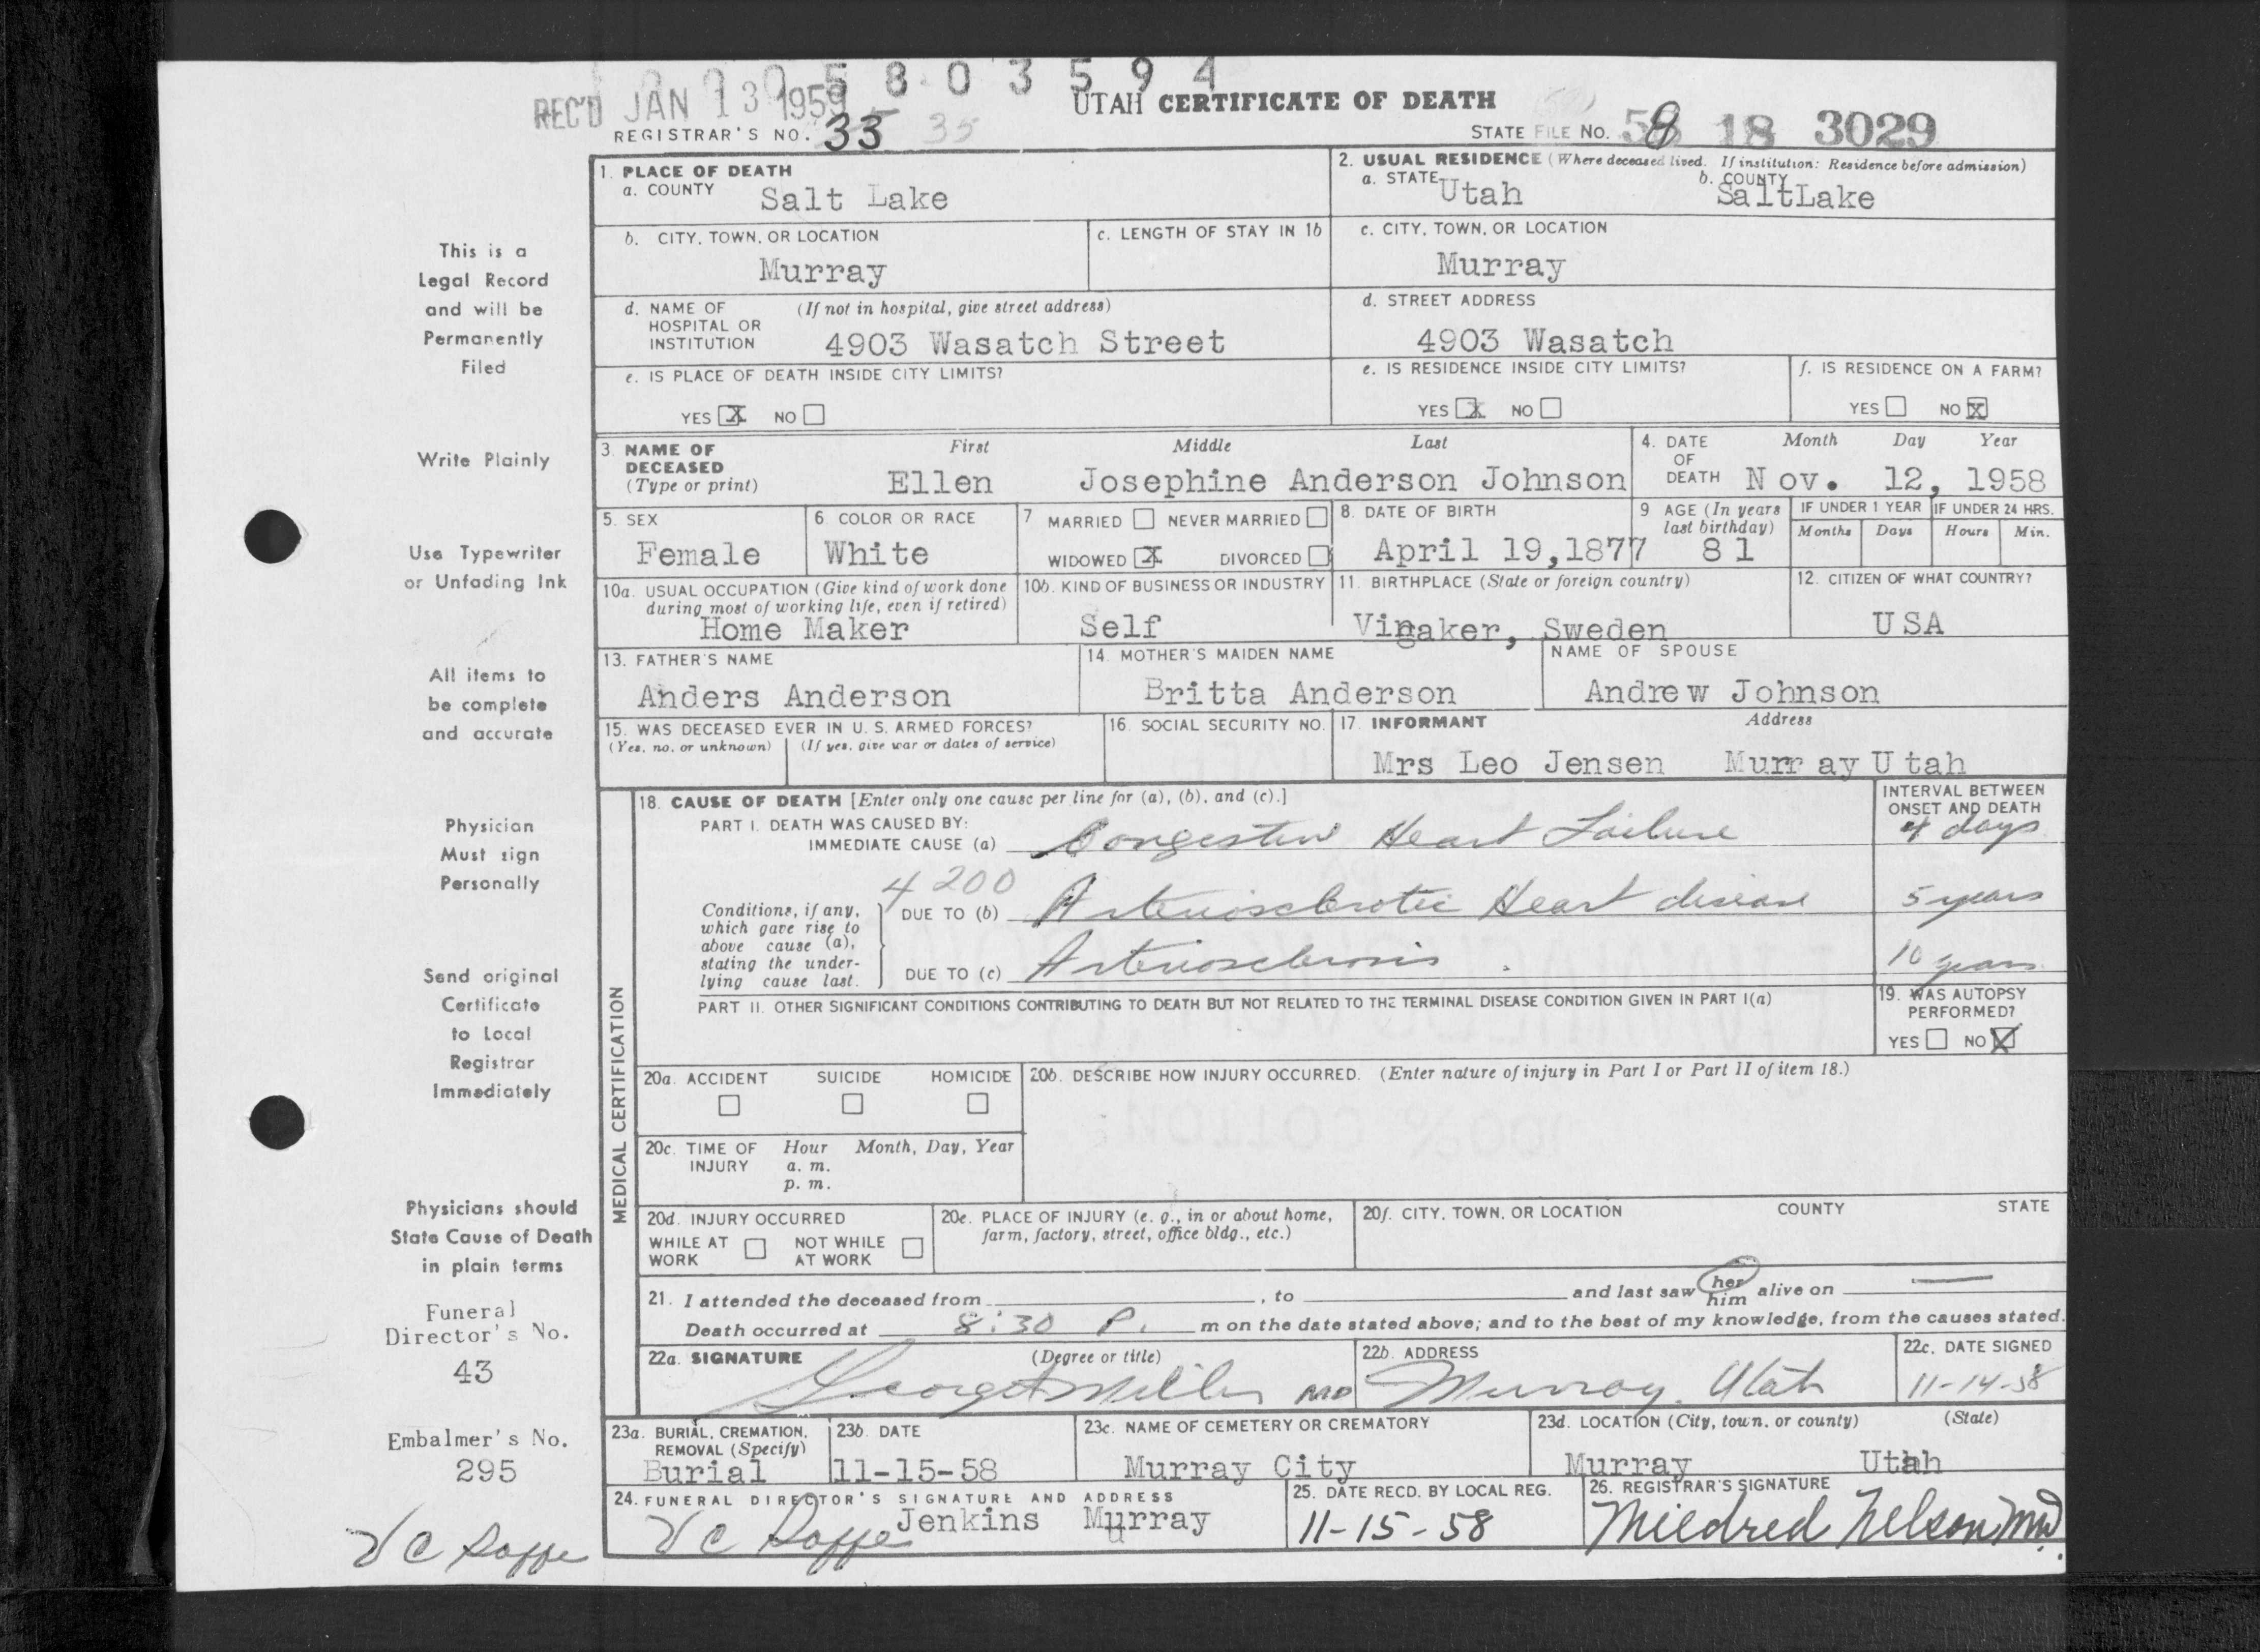 5803594
REC'D JAN 13 1959
UTAH CERTIFICATE OF DEATH
REGISTRAR'S NO. 33 35
STATE FILE NO. 58 18 3029
1. PLACE OF DEATH
a. COUNTY Salt Lake
2. USUAL RESIDENCE (Where deceased lived. If institution: Residence before admission)
a. STATE Utah b. COUNTY SaltLake
b. CITY, TOWN, OR LOCATION Murray
c. LENGTH OF STAY IN 1b
c. CITY, TOWN, OR LOCATION Murray
d. NAME OF HOSPITAL OR INSTITUTION (If not in hospital, give street address) 4903 Wasatch Street
d. STREET ADDRESS 4903 Wasatch
e. IS PLACE OF DEATH INSIDE CITY LIMITS?
YES X NO
e. IS RESIDENCE INSIDE CITY LIMITS?
YES X NO
f. IS RESIDENCE ON A FARM?
YES NO X
3. NAME OF DECEASED (Type or print)
First Middle Last
Ellen Josephine Anderson Johnson
4. DATE OF DEATH Month Day Year
Nov. 12, 1958
5. SEX Female
6. COLOR OR RACE White
7 MARRIED NEVER MARRIED
WIDOWED X DIVORCED
8. DATE OF BIRTH April 19,1877
9 AGE (In years last birthday) 81
IF UNDER 1 YEAR Months Days
IF UNDER 24 HRS. Hours Min.
10a. USUAL OCCUPATION (Give kind of work done during most of working life, even if retired)
Home Maker
10b. KIND OF BUSINESS OR INDUSTRY
Self
11. BIRTHPLACE (State or foreign country)
Vingaker, Sweden
12. CITIZEN OF WHAT COUNTRY?
USA
13. FATHER'S NAME
Anders Anderson
14. MOTHER'S MAIDEN NAME
Britta Anderson
NAME OF SPOUSE
Andrew Johnson
15. WAS DECEASED EVER IN U. S. ARMED FORCES?
(Yes, no, or unknown) (If yes, give war or dates of service)
16. SOCIAL SECURITY NO.
17. INFORMANT Address
Mrs Leo Jensen Murray Utah
MEDICAL CERTIFICATION
18. CAUSE OF DEATH [Enter only one cause per line for (a), (b), and (c).]
INTERVAL BETWEEN ONSET AND DEATH
PART I. DEATH WAS CAUSED BY:
IMMEDIATE CAUSE (a) Congestive Heart Failure 4 days
4200
Conditions, if any, which gave rise to above cause (a), stating the underlying cause last.
DUE TO (b) Arteriosclerotic Heart disease 5 years
DUE TO (c) Arteriosclerosis 10 years
PART II. OTHER SIGNIFICANT CONDITIONS CONTRIBUTING TO DEATH BUT NOT RELATED TO THE TERMINAL DISEASE CONDITION GIVEN IN PART I(a)
19. WAS AUTOPSY PERFORMED?
YES NO X
20a. ACCIDENT SUICIDE HOMICIDE
20b. DESCRIBE HOW INJURY OCCURRED. (Enter nature of injury in Part I or Part II of item 18.)
20c. TIME OF INJURY Hour Month, Day, Year
a. m.
p. m.
20d. INJURY OCCURRED
WHILE AT WORK NOT WHILE AT WORK
20e. PLACE OF INJURY (e. g., in or about home, farm, factory, street, office bldg., etc.)
20f. CITY, TOWN, OR LOCATION COUNTY STATE
21. I attended the deceased from , to and last saw her him alive on —
Death occurred at 8:30 P. m on the date stated above; and to the best of my knowledge, from the causes stated.
22a. SIGNATURE (Degree or title)
George A Miller MD
22b. ADDRESS
Murray, Utah
22c. DATE SIGNED
11-14-58
23a. BURIAL, CREMATION, REMOVAL (Specify)
Burial
23b. DATE
11-15-58
23c. NAME OF CEMETERY OR CREMATORY
Murray City
23d. LOCATION (City, town, or county) (State)
Murray Utah
24. FUNERAL DIRECTOR'S SIGNATURE AND ADDRESS
Jenkins Murray
25. DATE RECD. BY LOCAL REG.
11-15-58
26. REGISTRAR'S SIGNATURE
Mildred Nelson MD.
This is a
Legal Record
and will be
Permanently
Filed
Write Plainly
Use Typewriter
or Unfading Ink
All items to
be complete
and accurate
Physician
Must sign
Personally
Send original
Certificate
to Local
Registrar
Immediately
Physicians should
State Cause of Death
in plain terms
Funeral
Director's No.
43
Embalmer's No.
295